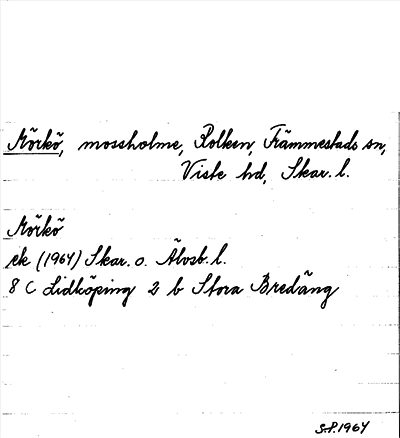 Mörkö, mossholme, Rolken, Främmestads sn,
Viste hd, Skar. l.
Mörkö
ek (1964) Skar. o. Älvsb. l.
8 C Lidköping 2 b Stora Bredäng
S.P. 1964